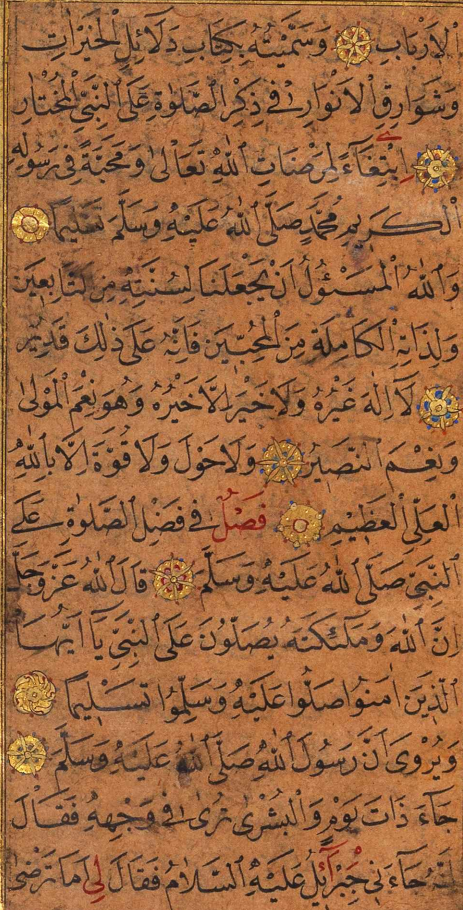 الْاَرْبَابِ وَسَمَّيْتُهُ بِكِتَابِ دَلَائِلِ الْخَيْرَاتِ
وَشَوَارِقِ الْاَنْوَارِ فِي ذِكْرِ الصَّلٰوةِ عَلَى النَّبِيِّ الْمُخْتَارِ
اِبْتِغَآءً لِمَرْضَاتِ اللّٰهِ تَعَالٰى وَمَحَبَّةً فِي رَسُولِهِ
الْكَرِيمِ مُحَمَّدٍ صَلَّى اللّٰهُ عَلَيْهِ وَسَلَّمَ تَسْلِيمًا
وَاللّٰهُ الْمَسْـُٔولُ اَنْ يَجْعَلَنَا لِسُنَّتِهِ مِنَ التَّابِعِينَ
وَلِذَاتِهِ الْكَامِلَةِ مِنَ الْمُحِبِّينَ فَاِنَّهُ عَلَى ذٰلِكَ قَدِيرٌ
لَآ اِلٰهَ غَيْرُهُ وَلَا خَيْرَ اِلَّا خَيْرُهُ وَهُوَ نِعْمَ الْمَوْلٰى
وَنِعْمَ النَّصِيرُ وَلَا حَوْلَ وَلَا قُوَّةَ اِلَّا بِاللّٰهِ
الْعَلِيِّ الْعَظِيمِ فَصْلٌ فِي فَضْلِ الصَّلٰوةِ عَلَى
النَّبِيِّ صَلَّى اللّٰهُ عَلَيْهِ وَسَلَّمَ قَالَ اللّٰهُ عَزَّ وَجَلَّ
اِنَّ اللّٰهَ وَمَلٰٓئِكَتَهُ يُصَلُّونَ عَلَى النَّبِيِّ يَآ اَيُّهَا
الَّذِينَ اٰمَنُوا صَلُّوا عَلَيْهِ وَسَلِّمُوا تَسْلِيمًا
وَيُرْوٰى اَنَّ رَسُولَ اللّٰهِ صَلَّى اللّٰهُ عَلَيْهِ وَسَلَّمَ
جَآءَ ذَاتَ يَوْمٍ وَالْبُشْرٰى تُرٰى فِي وَجْهِهِ فَقَالَ
اِنَّهُ جَآءَنِي جِبْرَآئِيلُ عَلَيْهِ السَّلَامُ فَقَالَ لِي اَمَا تَرْضٰى